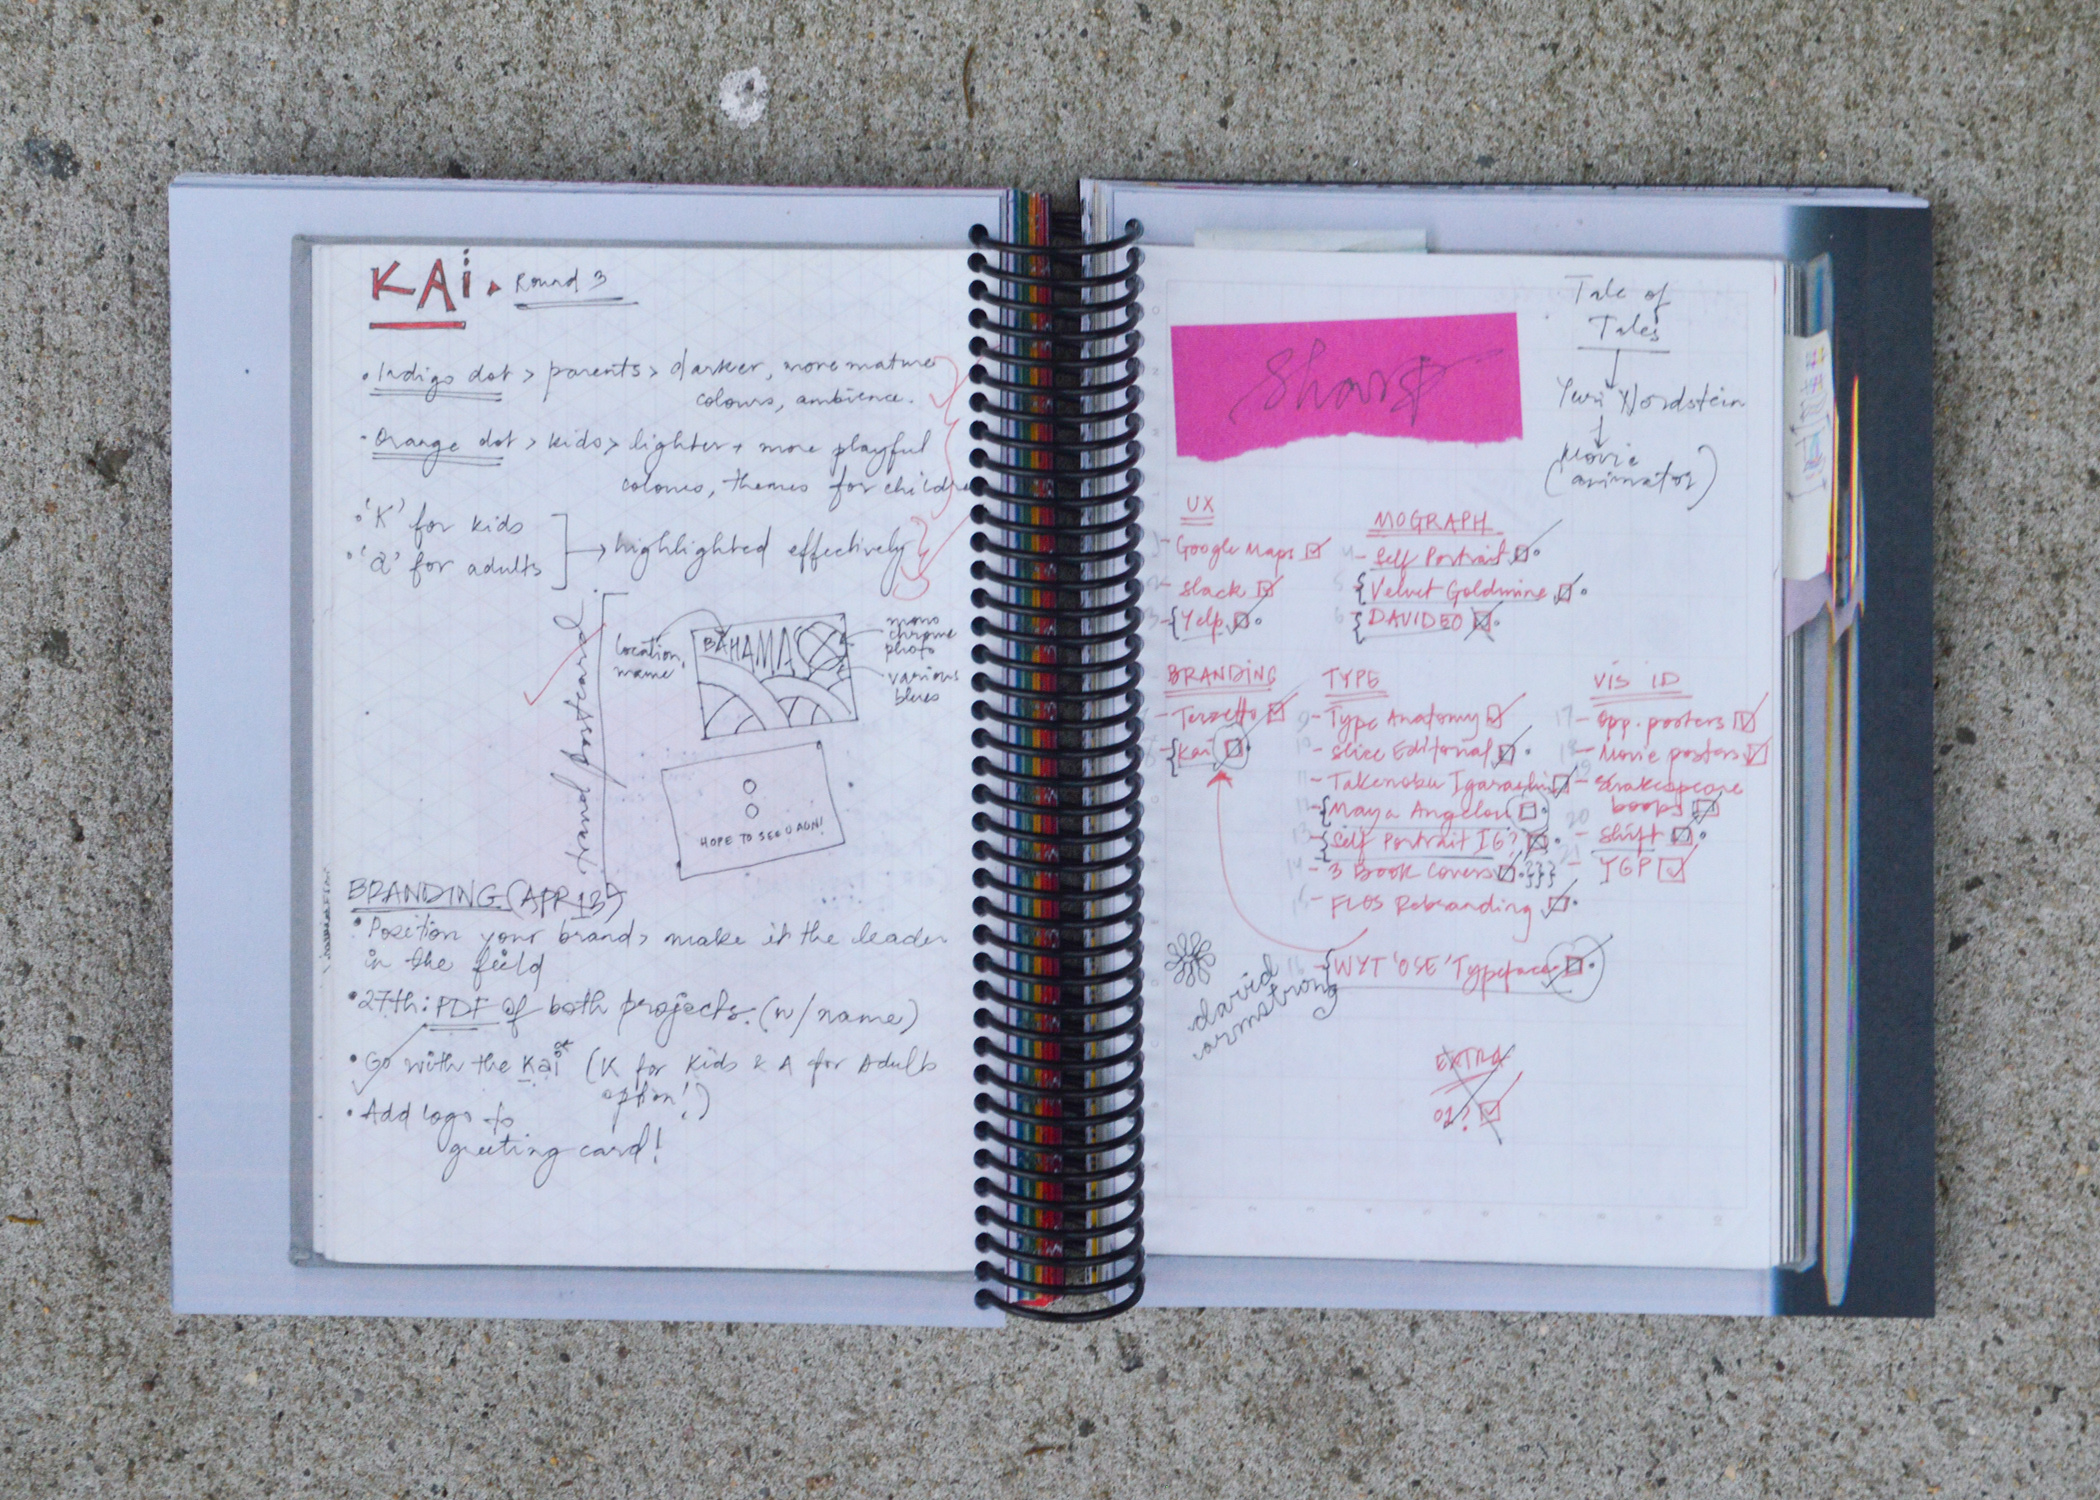 KAi. Round 3
• Indigo dot > parents > darker, more mature
colours, ambience.
• Orange dot > kids > lighter + more playful
colours, themes for childre
• 'K' for kids
• 'a' for adults
→ highlighted effectively
travel postcard
location,
name
BAHAMAS
mono
chrome
photo
various
blues
HOPE TO SEE U AGN!
BRANDING (APR 13)
• Position your brand > make it the leader
in the field
• 27th: PDF of both projects. (w/name)
• Go with the Kai (K for Kids & A for Adults
option!)
• Add logo to
greeting card!
Sharp
Tale of
Tales
Yuri Nordstein
Movie
(animator)
UX
- Google Maps
- Slack
3 - {Yelp
MOGRAPH
4 - Self Portrait
5 {Velvet Goldmine
6 {DAVIDEO
BRANDING
- Terzetto
- {Kai
TYPE
9 - Type Anatomy
10 - Slice Editorial
11 - Takenobu Igarashi
12 - {Maya Angelou
13 - {Self Portrait IG?
14 - 3 Book Covers {}}}
15 - FLOS Rebranding
16 - {WYT 'OSE' Typeface
VIS ID
17 - Opp. posters
18 - Movie posters
19 - Shakespeare
books
20 - Shift
21 - YGP
david
armstrong
EXTRA
01?